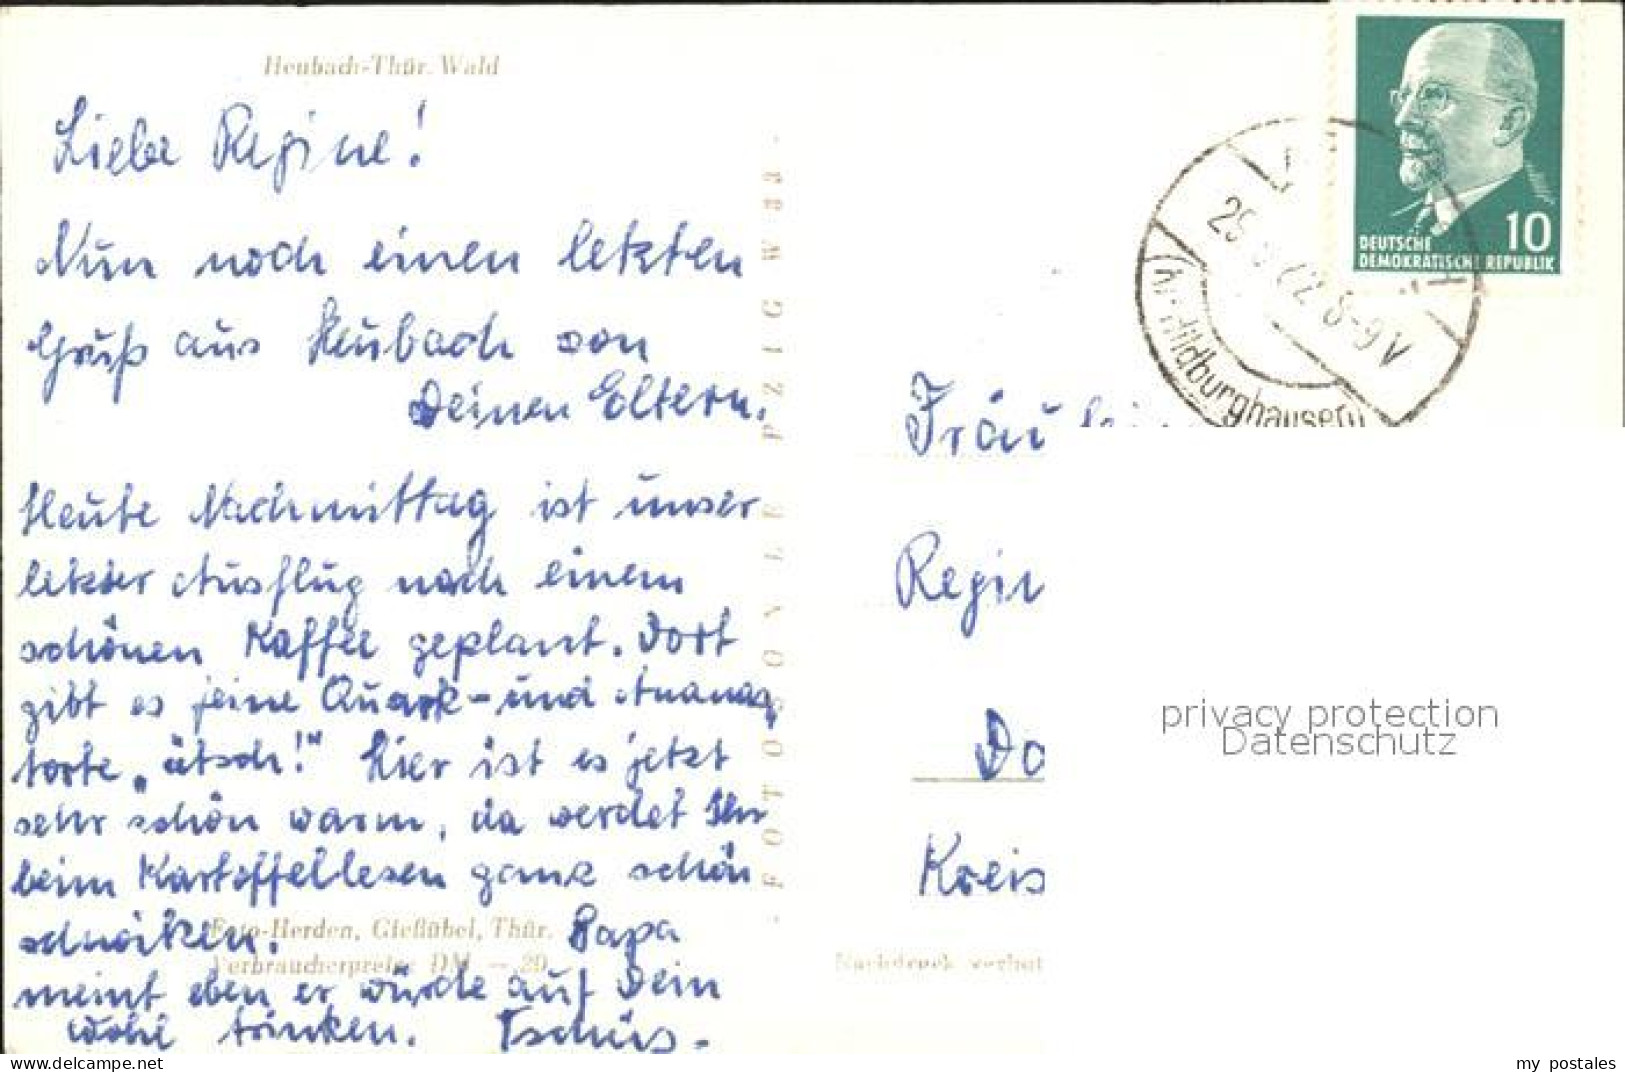 Heubach-Thür. Wald
Liebe Regine!
Nun noch einen letzten
Gruß aus Heubach von
Deinen Eltern.
Heute Nachmittag ist unser
letzter Ausflug nach einem
schönen Kaffee geplant. Dort
gibt es feine Quark- und Ananas
torte „ätsch!" Hier ist es jetzt
sehr schön warm, da werdet Ihr
beim Kartoffellesen ganz schön
schwitzen. Papa
meint eben er würde auf Dein
Wohl trinken. Tschüs-
Foto-Herden, Gießübel, Thür.
Verbraucherpreis: DM -.20
FOTO
10
DEUTSCHE
DEMOKRATISCHE REPUBLIK
8-9V
Hildburghausen
Fräulein
Regin
Do
Kreis
Nachdruck verbot
privacy protection
Datenschutz
my postales